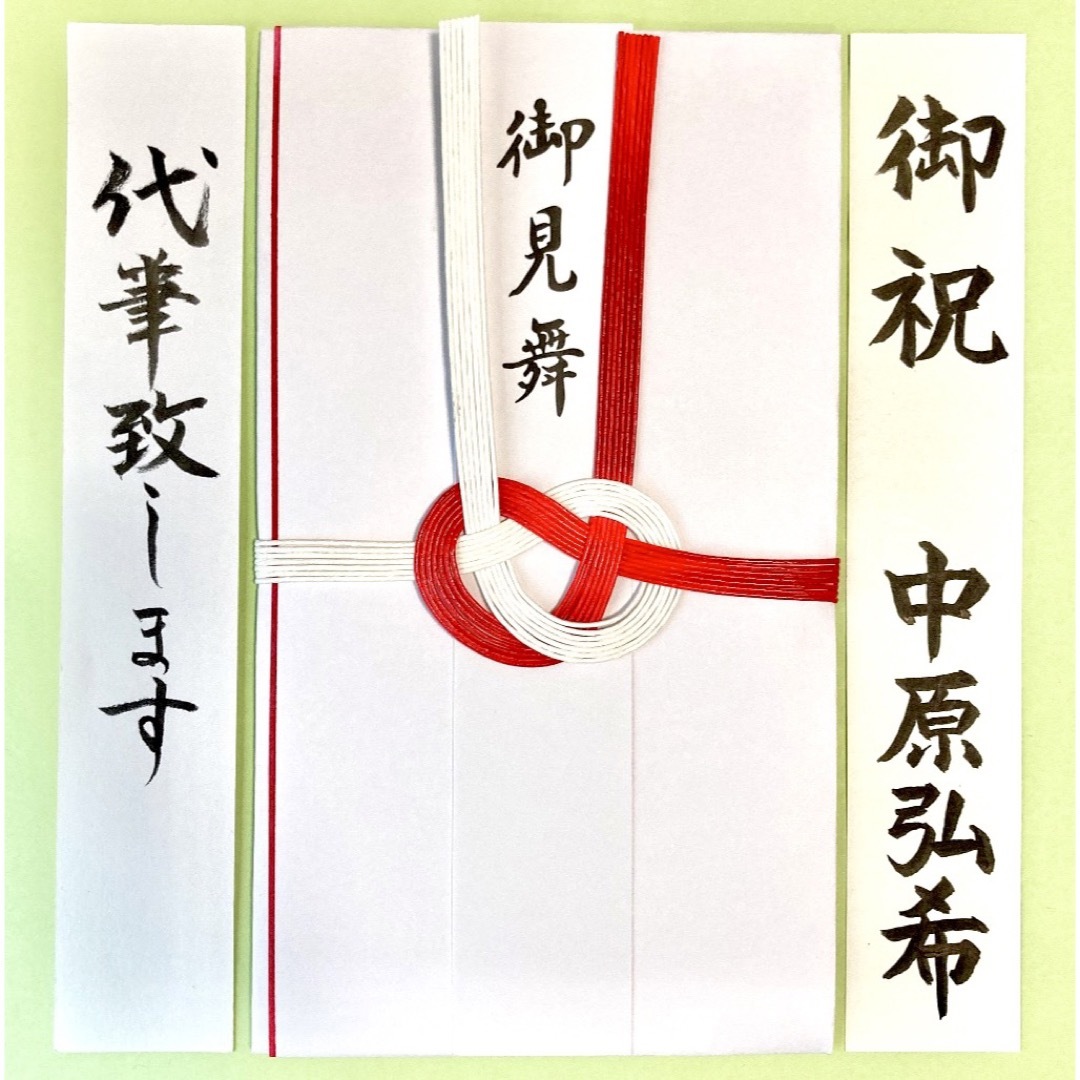 御祝 中原弘希
御見舞
代筆致します